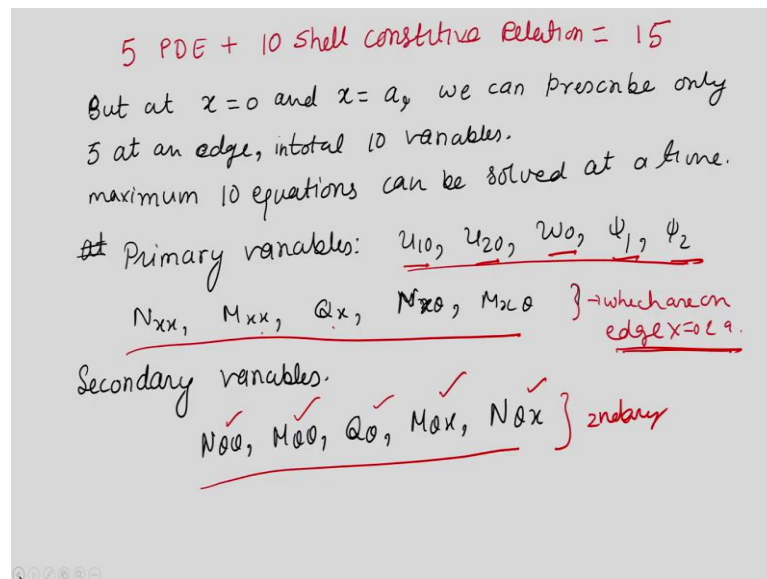 5 PDE + 10 Shell constitive Relation = 15
But at x = 0 and x = a, we can prescribe only
5 at an edge, intotal 10 variables.
maximum 10 equations can be solved at a time.
at Primary variables: u₁₀, u₂₀, w₀, ψ₁, ψ₂
Nxx, Mxx, Qx, Nxθ, Mxθ } → which are on
edge x=0 & a.
Secondary variables.
Nθθ, Mθθ, Qθ, Mθx, Nθx } 2ndary